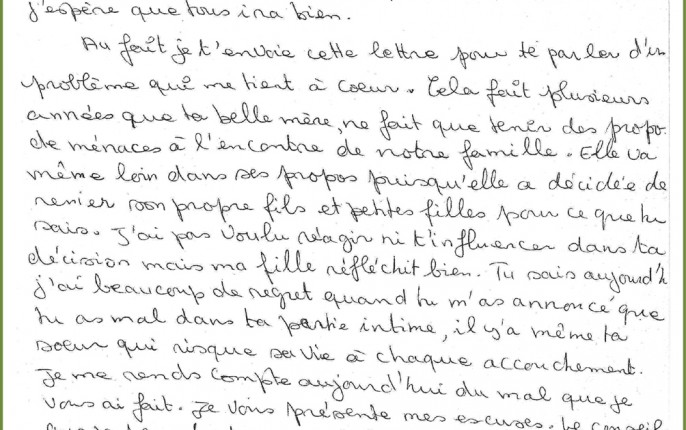 j'espère que tous ira bien.
Au faît je t'envoie cette lettre pour te parler d'un
problème qui me tient à coeur. Cela faît plusieurs
années que ta belle mère, ne fait que tenir des propo
de ménaces à l'encontre de notre famille. Elle va
même loin dans ses propos puisqu'elle a décidée de
renier son propre fils et petites filles pour ce que tu
sais. J'ai pas voulu réagir ni t'influencer dans ta
décision mais ma fille réfléchit bien. Tu sais aujourd'h
j'ai beaucoup de regret quand tu m'as annoncé que
tu as mal dans ta partie intime, il y'a même ta
soeur qui risque sa vie à chaque accouchement.
Je me rends compte aujourd'hui du mal que je
vous ai fait. Je vous présente mes excuses. Le conseil